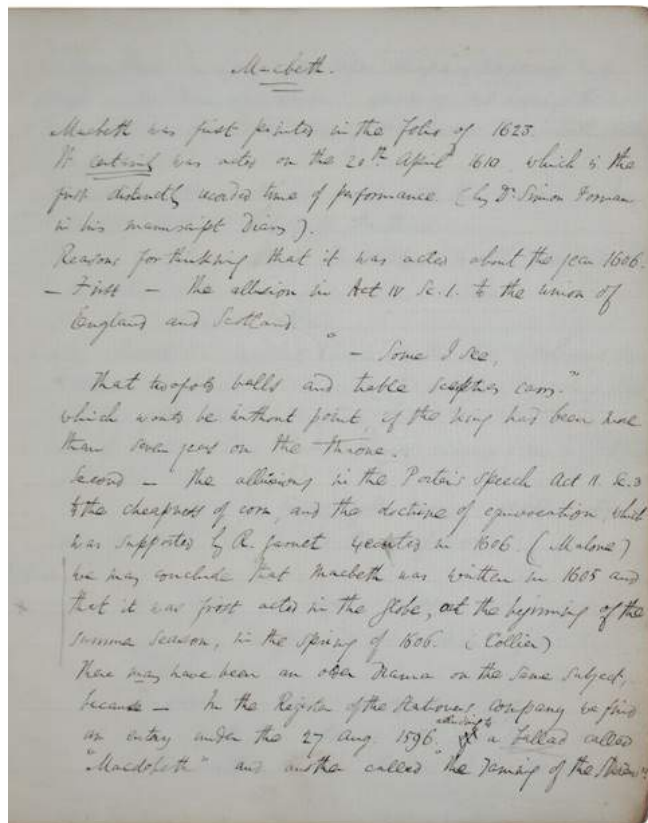 Macbeth.
Macbeth was first printed in the folio of 1623.
It certainly was acted on the 20th April 1610 which is the
first distinctly recorded time of performance. (by Dr Simon Forman
in his manuscript Diary).
Reasons for thinking that it was acted about the year 1606.
— First — the allusion in Act IV Sc. 1. to the union of
England and Scotland.
" — Some I see,
That twofold balls and treble sceptres carry."
which would be without point, if the king had been more
than seven years on the throne.
Second — the allusions in the Porter's speech Act II. Sc. 3
to the cheapness of corn, and the doctrine of equivocation, which
was supported by R. Garnet executed in 1606. (Malone)
We may conclude that Macbeth was written in 1605 and
that it was first acted in the Globe, at the beginning of the
summer season, in the spring of 1606. (Collier)
There may have been an older Drama on the same subject,
because — In the Register of the Stationers company we find
an entry under the 27 Aug 1596, alluding to a ballad called
"Macdobeth" and another called "the Taming of the Shrew"